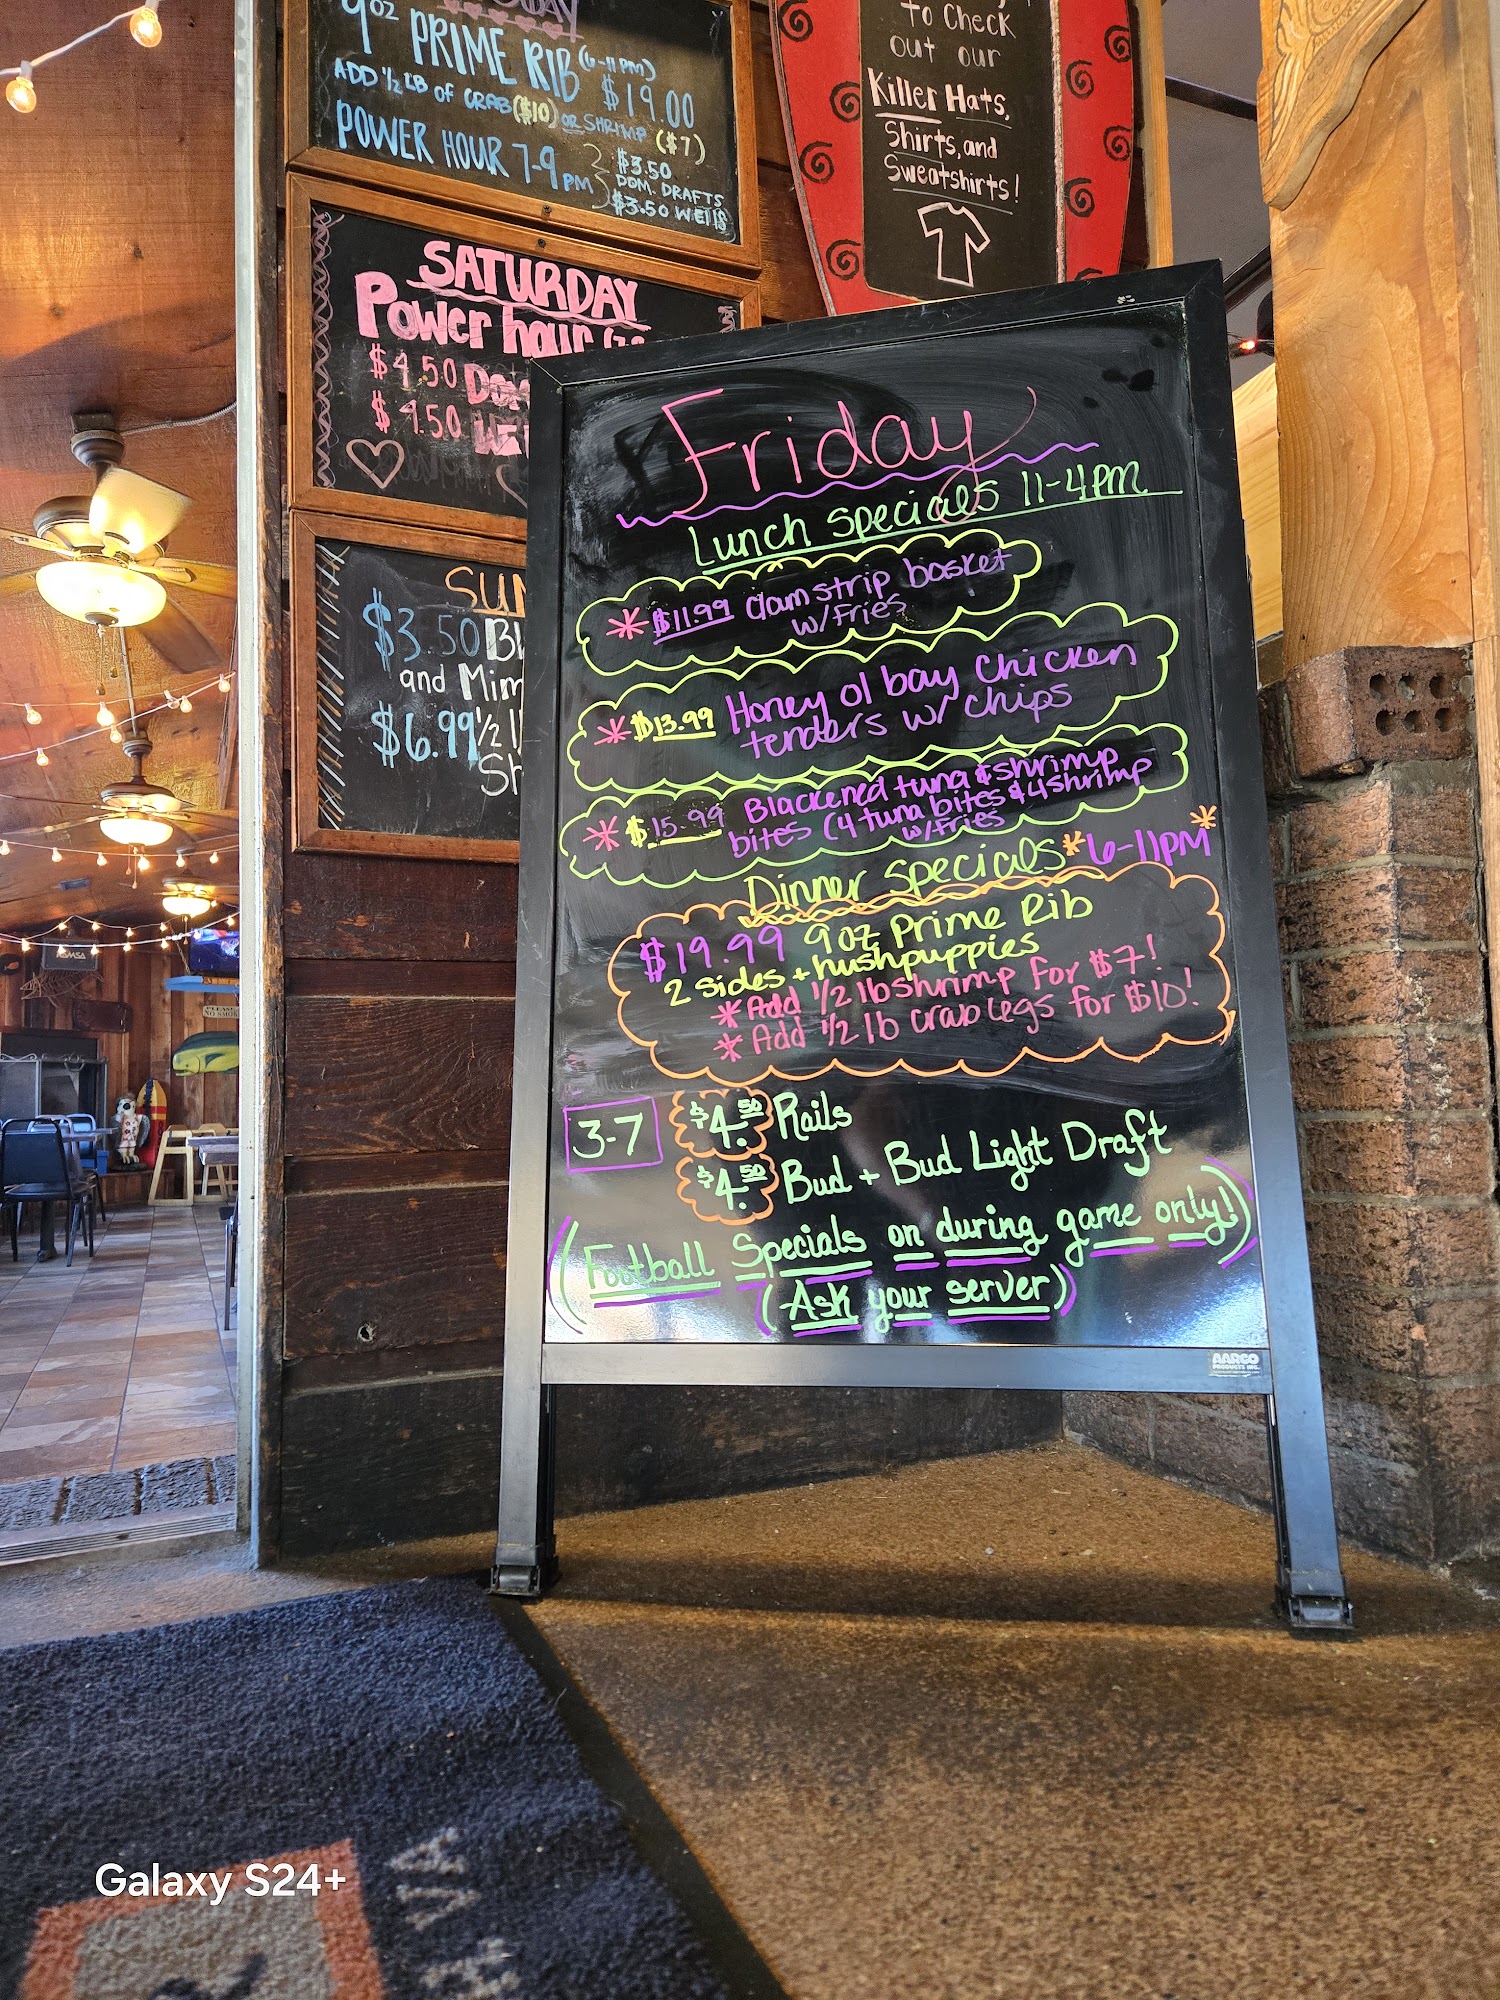 9oz PRIME RIB (6-11PM)
$19.00
ADD 1/2 LB OF CRAB ($10) OR SHRIMP ($7)
POWER HOUR 7-9 PM
$3.50
DOM. DRAFTS
$3.50 WELLS
SATURDAY
Power hour
$4.50
$4.50
$3.50
and
$6.99 1/2
to Check
out our
Killer Hats,
Shirts, and
Sweatshirts!
Friday
Lunch Specials 11-4PM
* $11.99 Clam strip basket
w/fries
* $13.99 Honey ol bay Chicken
tenders w/ chips
* $15.99 Blackened tuna & shrimp
bites (4 tuna bites & 4 shrimp
w/fries
Dinner Specials * 6-11PM *
$19.99 9oz Prime Rib
2 sides + hushpuppies
* Add 1/2 lb shrimp for $7!
* Add 1/2 lb crab legs for $10!
3-7
$4.50 Rails
$4.50 Bud + Bud Light Draft
(Football Specials on during game only!)
(Ask your server)
AARCO
PRODUCTS INC.
VA
Galaxy S24+